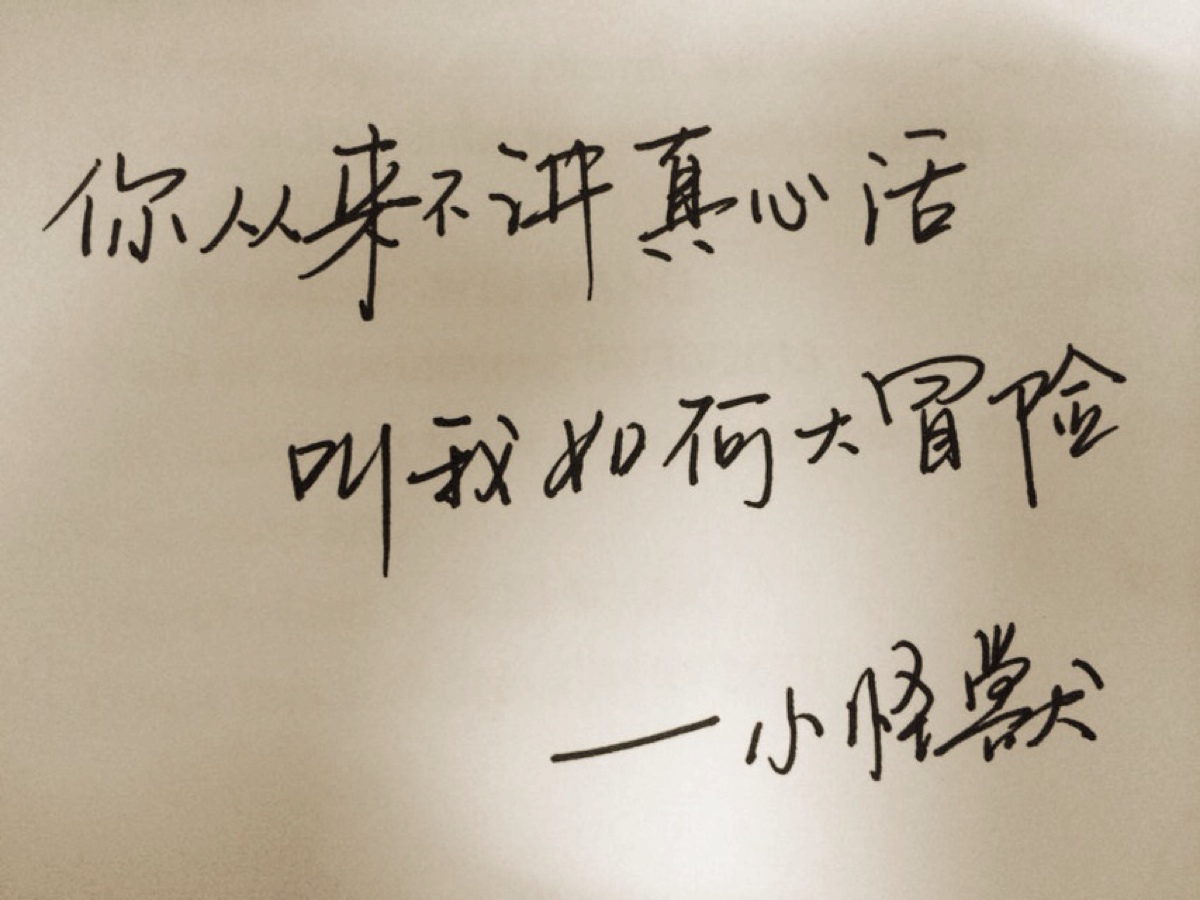 你从来不讲真心活
叫我如何大冒险
—小怪獸